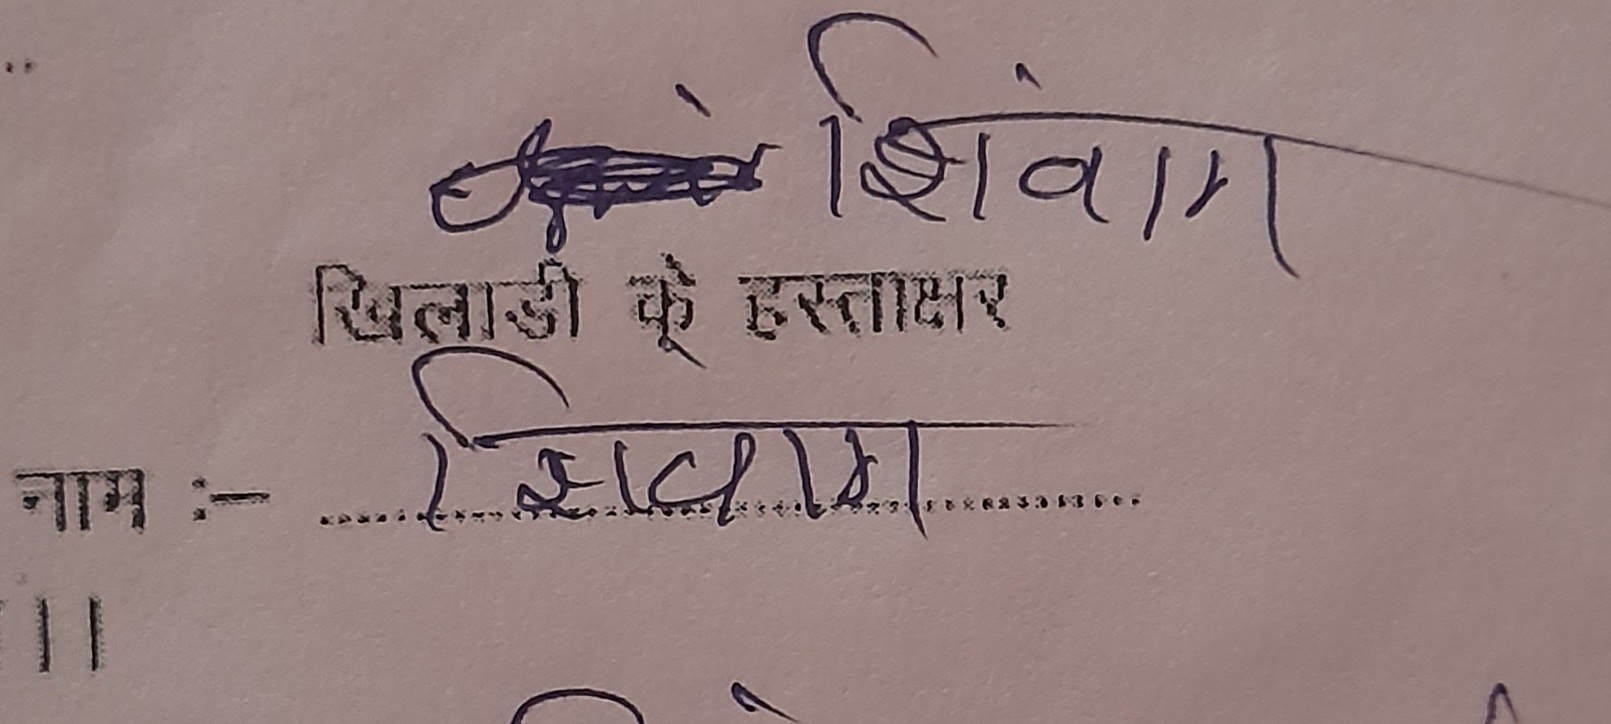 शिवम
खिलाडी के हस्ताक्षर
नाम :- शिवम
।।